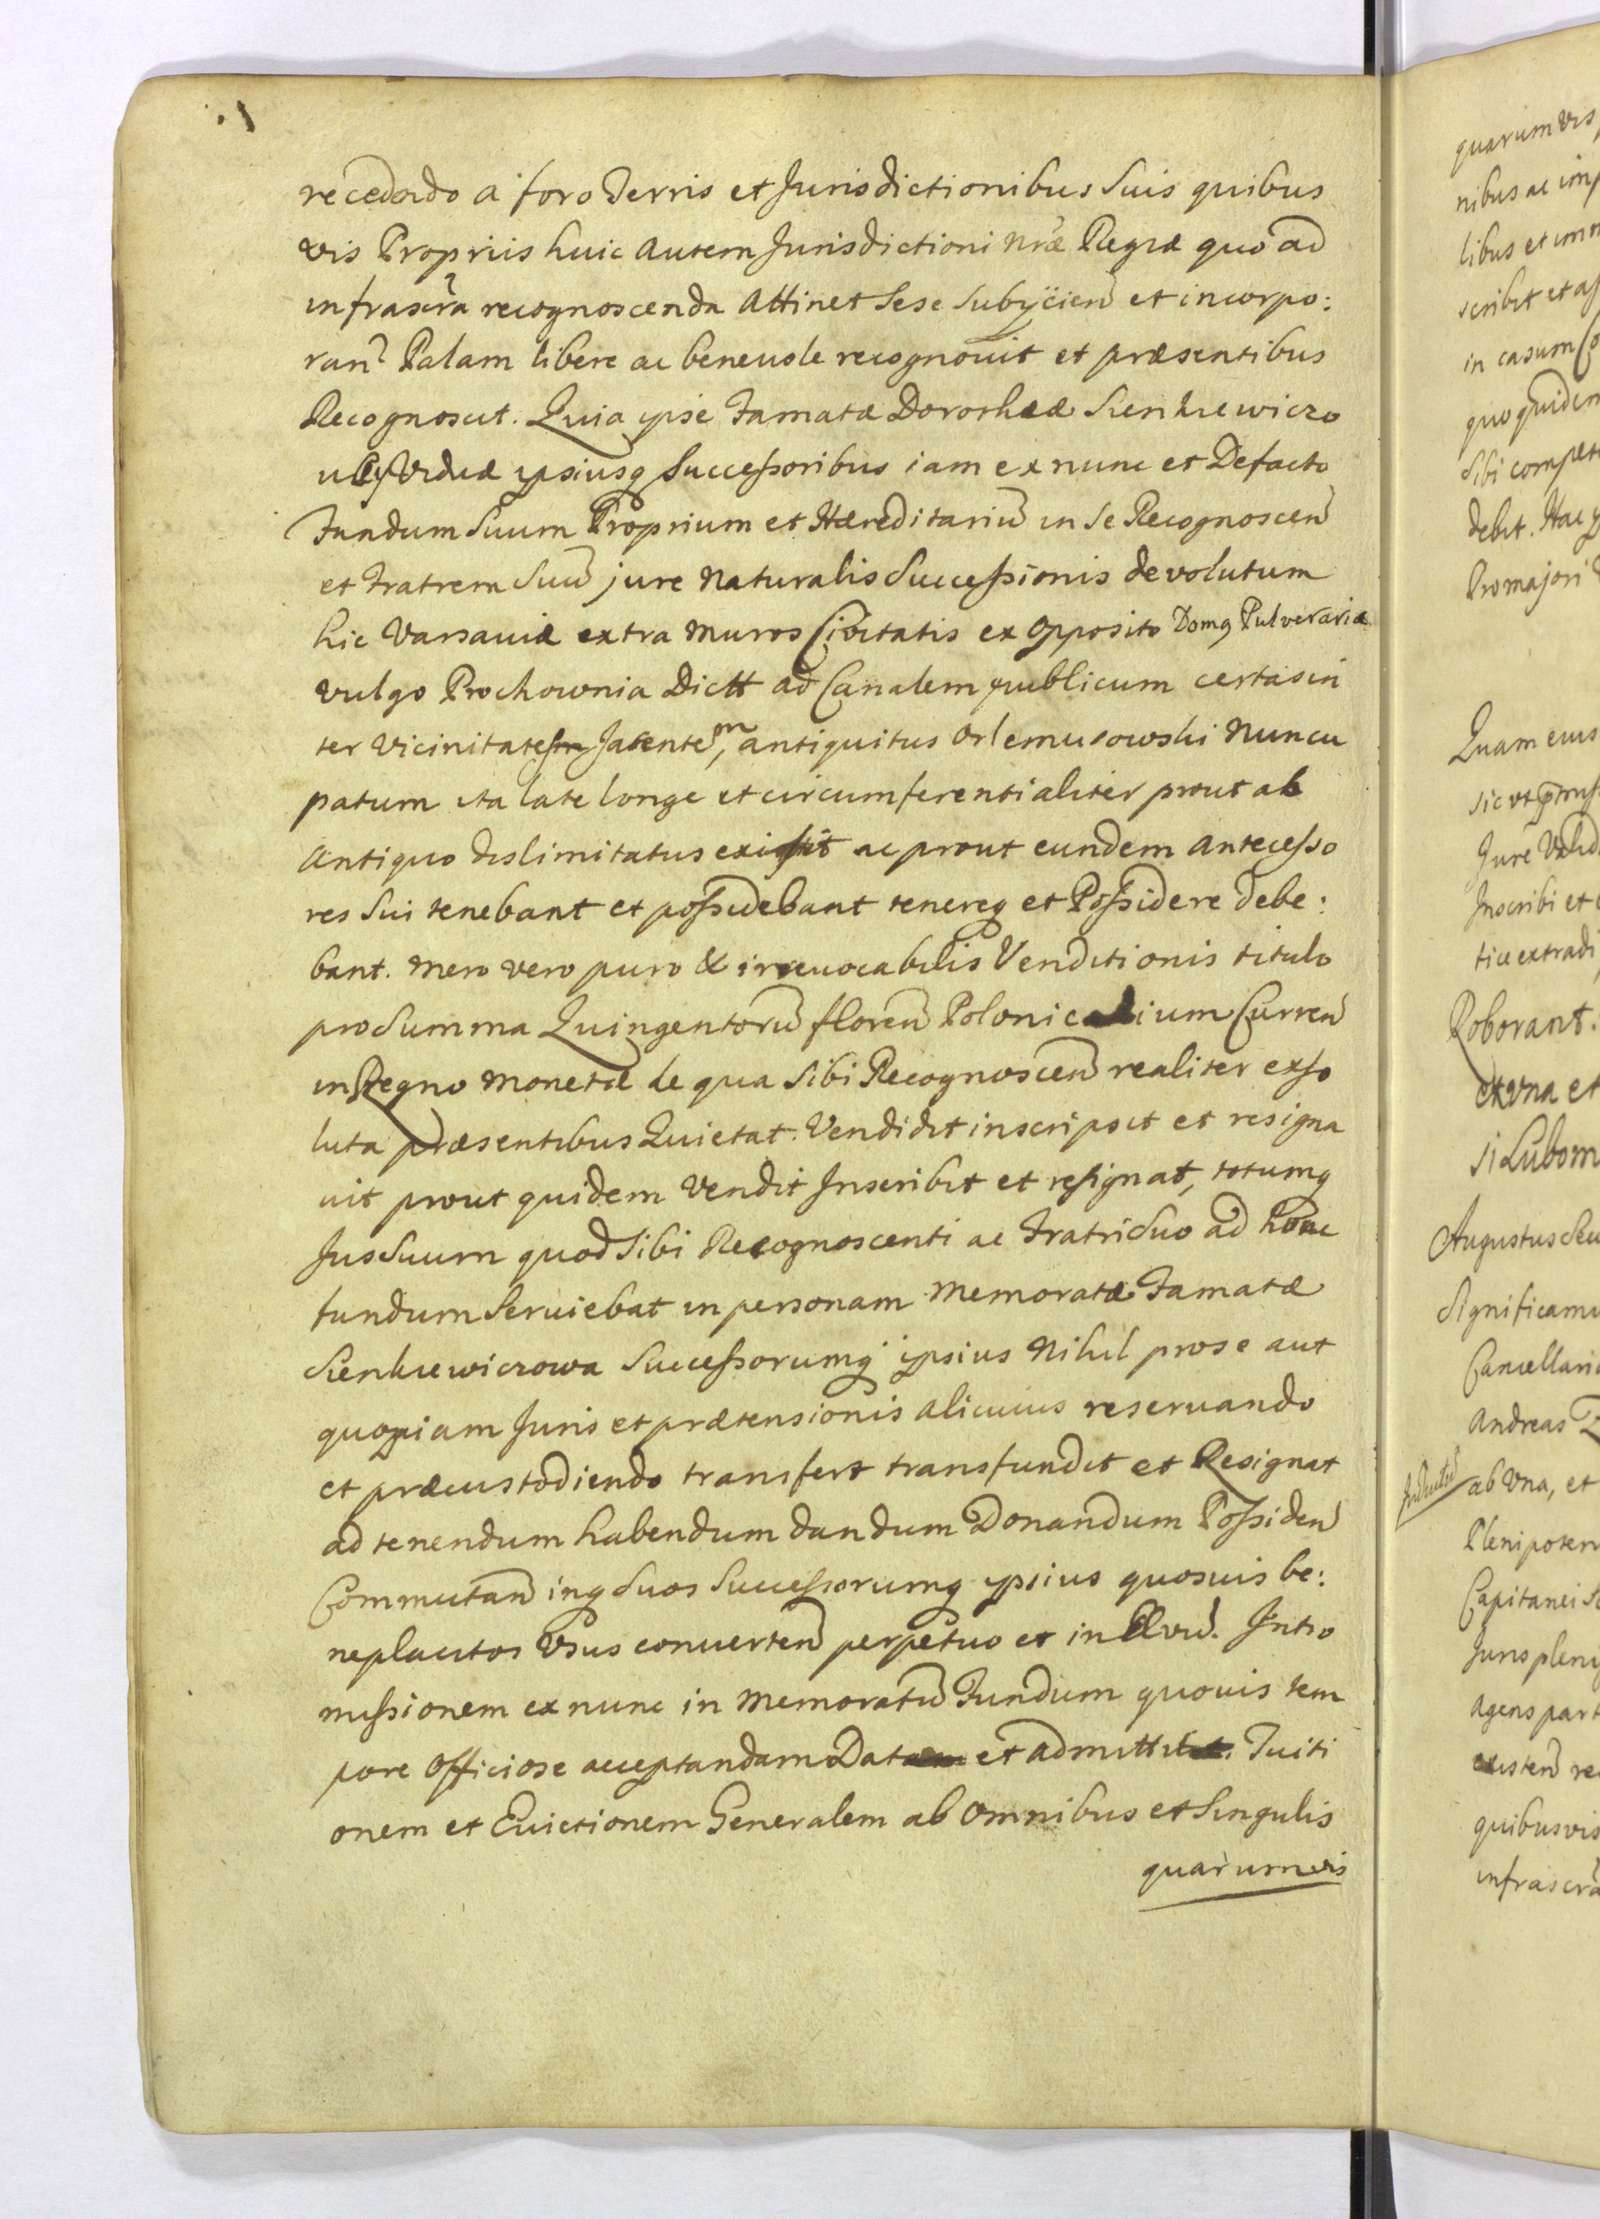 recedendo a foro Terris et Jurisdictionibus Suis quibus
vis Proprijs huic autem Jurisdictioni Nrae Regiae quo ad
infrascra recognoscenda Attinet Sese Subijcien et incorpo:
ran Palam libere ac beneuole recognouit et praesentibus
Recognoscit. Quia ipse Famatae Dorotheae Sienkiewiczo
Viduae ipsiusq Successoribus iam ex nunc et Defacto
Fundum Suum Proprium et Haereditariu in Se Recognoscen
et Fratrem Suu jure Naturalis Successionis devolutum
hic Varsaviae extra muros Civitatis ex opposito Domq Pulverariae
vulgo Prochownia Dictt ad Canalem publicum certas in
ter Vicinitates Jacentem, antiquitus Orlemusowski Nuncu
patum ita late longe et circumferentialiter prout ab
Antiquo dislimitatus existit ac prout eundem Antecesso
res Sui tenebant et possidebant tenereq et Possidere debe:
bant. Mero vero puro & irreuocabilis Venditionis titulo
pro Summa Quingentoru floren Polonicalium Curren
in Regno Monetae de qua Sibi Recognoscen realiter exso
luta praesentibus Quietat. Vendidit inscripsit et resigna
uit prout quidem Vendit Inscribit et resignat, totumq
Jus Suum quod Sibi Recognoscenti ac Fratri Suo ad hunc
fundum Seruiebat in personam Memoratae Famatae
Sienkiewiczowa Successorumq ipsius Nihil pro se aut
quopiam Juris et praetensionis alicuius reseruando
et praecustodiendo transfert transfundit et Resignat
ad tenendum habendum dandum Donandum Possiden
Commutan inq Suos Successorumq ipsius quosuis be:
neplacitos Vsus conuerten perpetuo et in AEvu. Intro
missionem ex nunc in Memoratu Fundum quouis tem
pore Officiose acceptandam Dat et admittit. Tuiti
onem et Evictionem Generalem ab Omnibus et Singulis
quarumvis
quarumvis
nibus ac imp
libus et imm
scribit et
in casum Co
quo quidem
Sibi compet
debit. Hac
Pro majori
Quam eius
sic vt
Jure Valid
Inscribi et
tice extradi
Roborant.
ex vna et
si Lubom
Augustus Secu
Significamu
Cancellari
Andreas Z
ab Vna, et
Plenipoten
Capitanei
Juris pleni
Agens part
existen re
quibusvis
infrascra